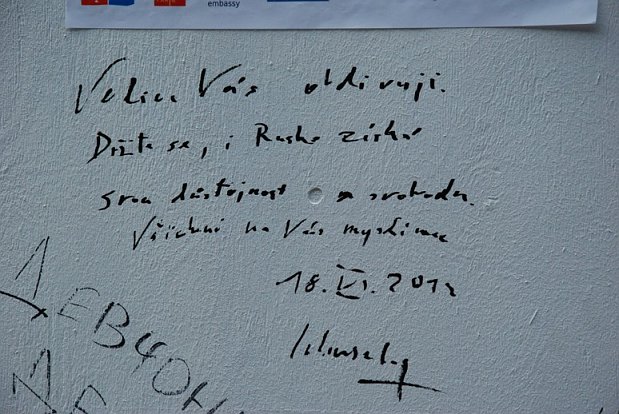 embassy
Velice Vás obdivuji.
Držte se, i Rusko získá
svou důstojnost a svobodu.
Všichni na Vás myslíme
18. VI. 2012